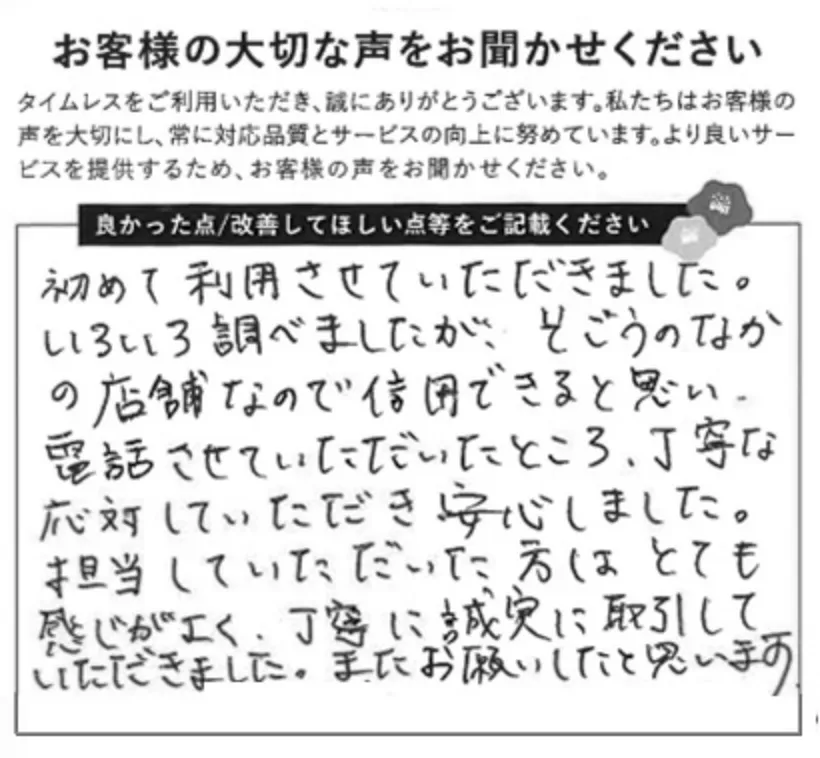 お客様の大切な声をお聞かせください
タイムレスをご利用いただき、誠にありがとうございます。私たちはお客様の
声を大切にし、常に対応品質とサービスの向上に努めています。より良いサー
ビスを提供するため、お客様の声をお聞かせください。
良かった点/改善してほしい点等をご記載ください
初めて利用させていただきました。
いろいろ調べましたが、そごうのなか
の店舗なので信用できると思い、
電話させていただいたところ、丁寧な
応対していただき安心しました。
担当していただいた方はとても
感じがよく、丁寧に誠実に取引して
いただきました。またお願いしたと思います。